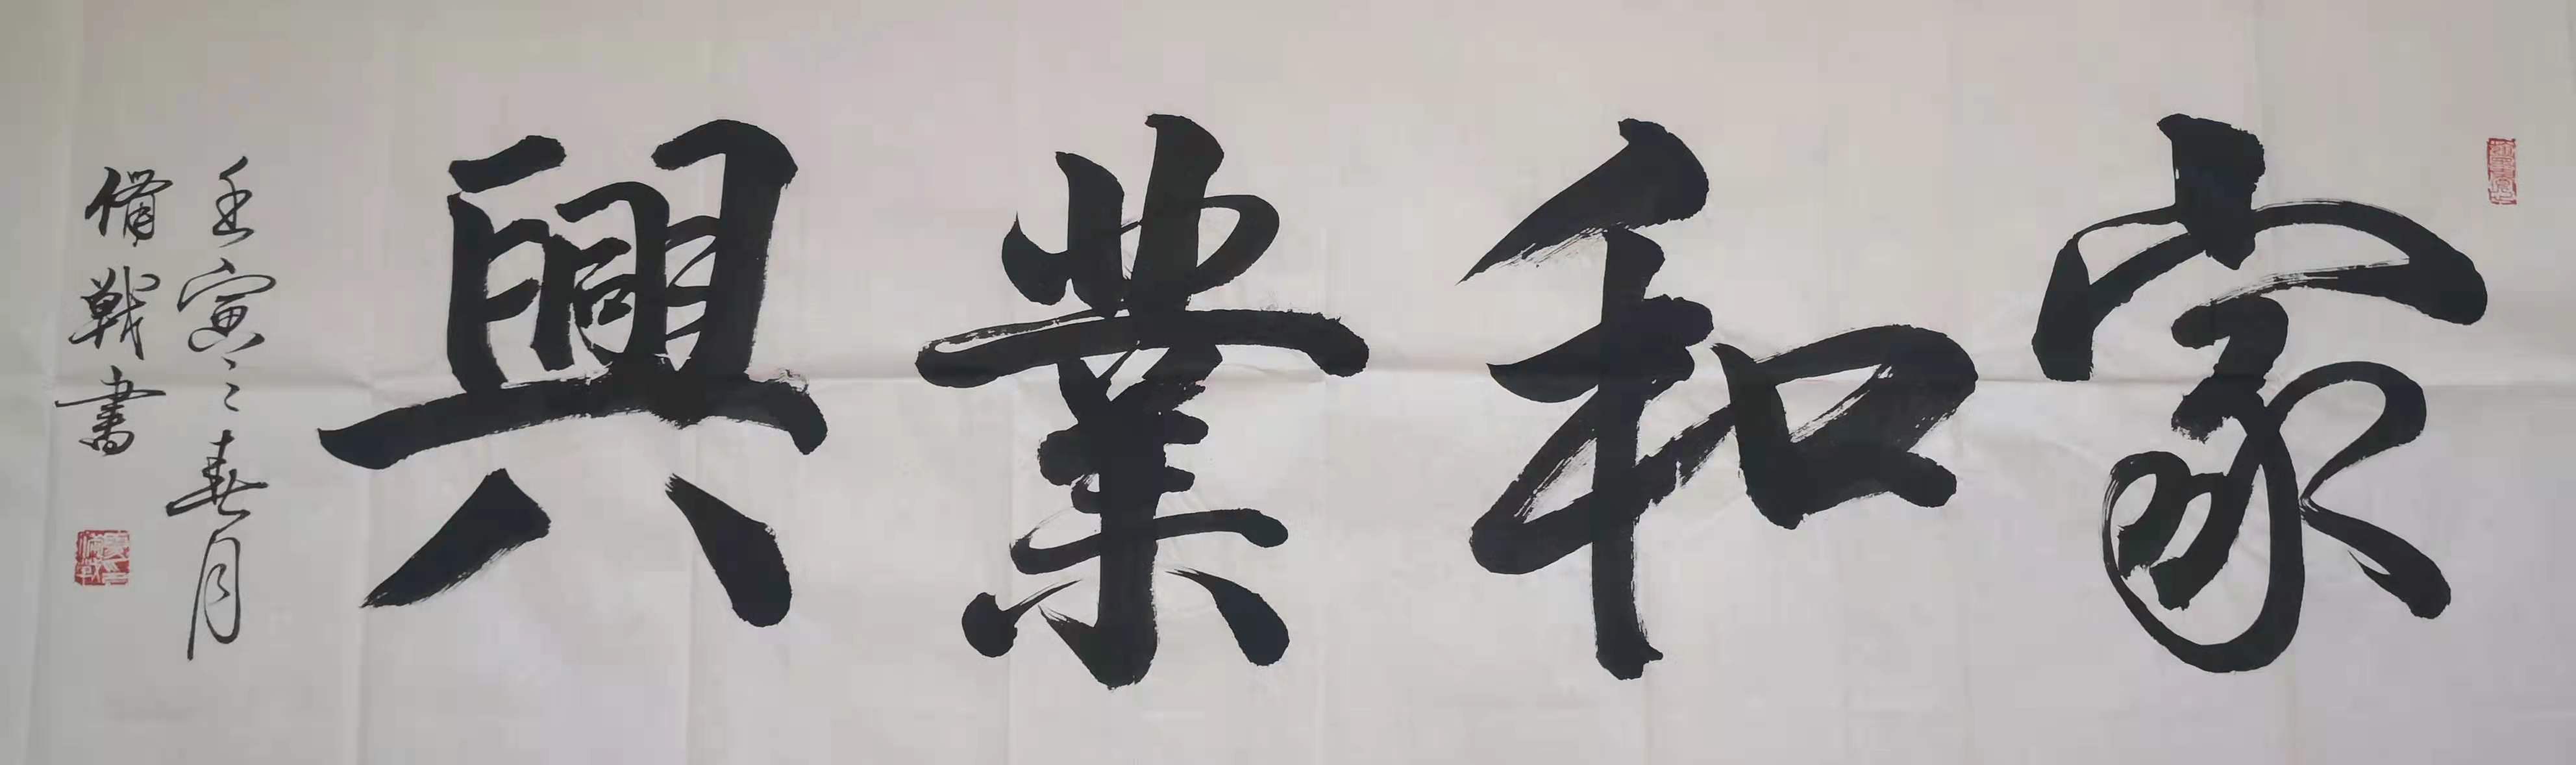 家和業興
壬寅之春月
備戰書